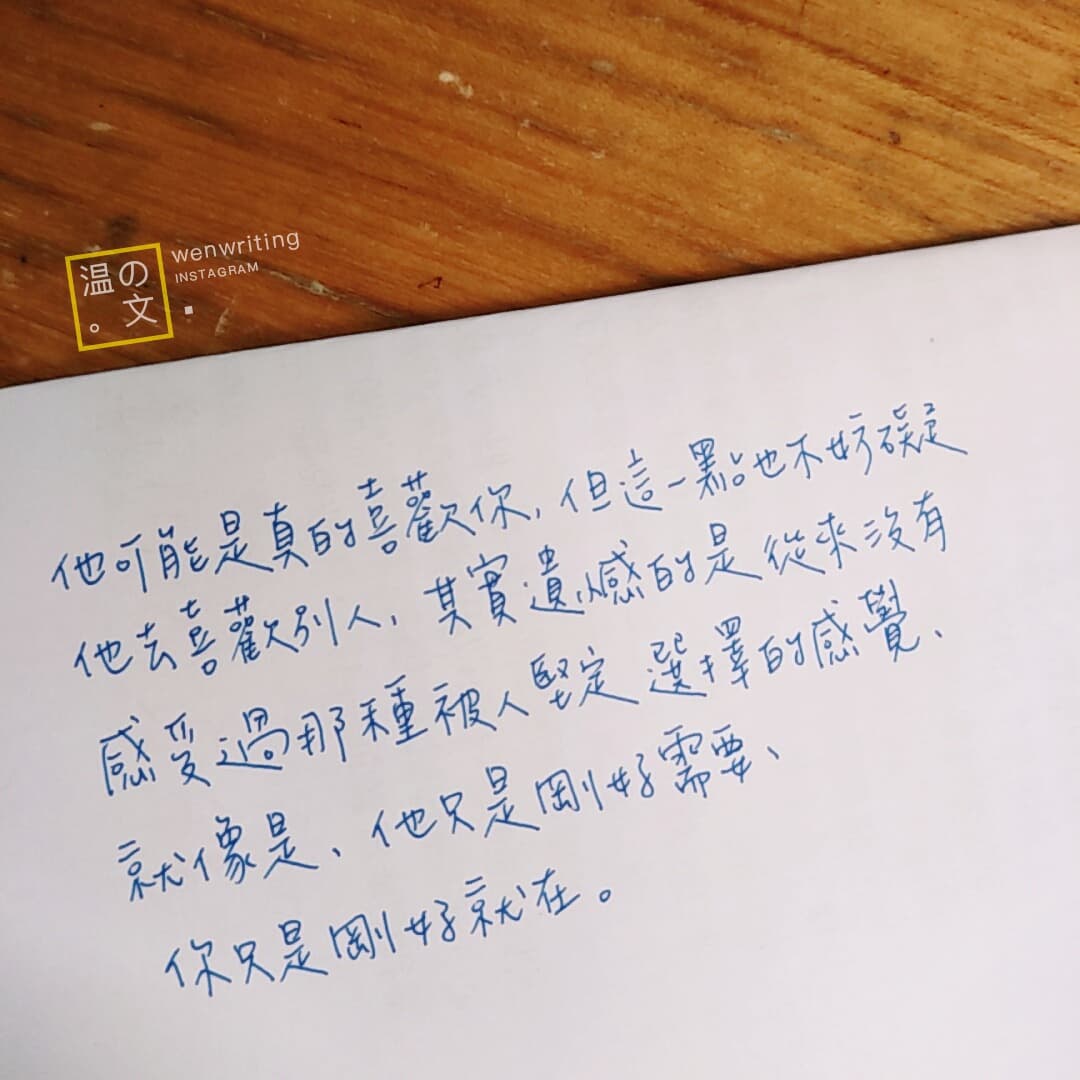 温の
。文
wenwriting
INSTAGRAM
他可能是真的喜歡你，但這一點也不妨礙
他去喜歡別人，其實遺憾的是從來沒有
感受過那種被人堅定選擇的感覺、
就像是、他只是剛好需要、
你只是剛好就在。